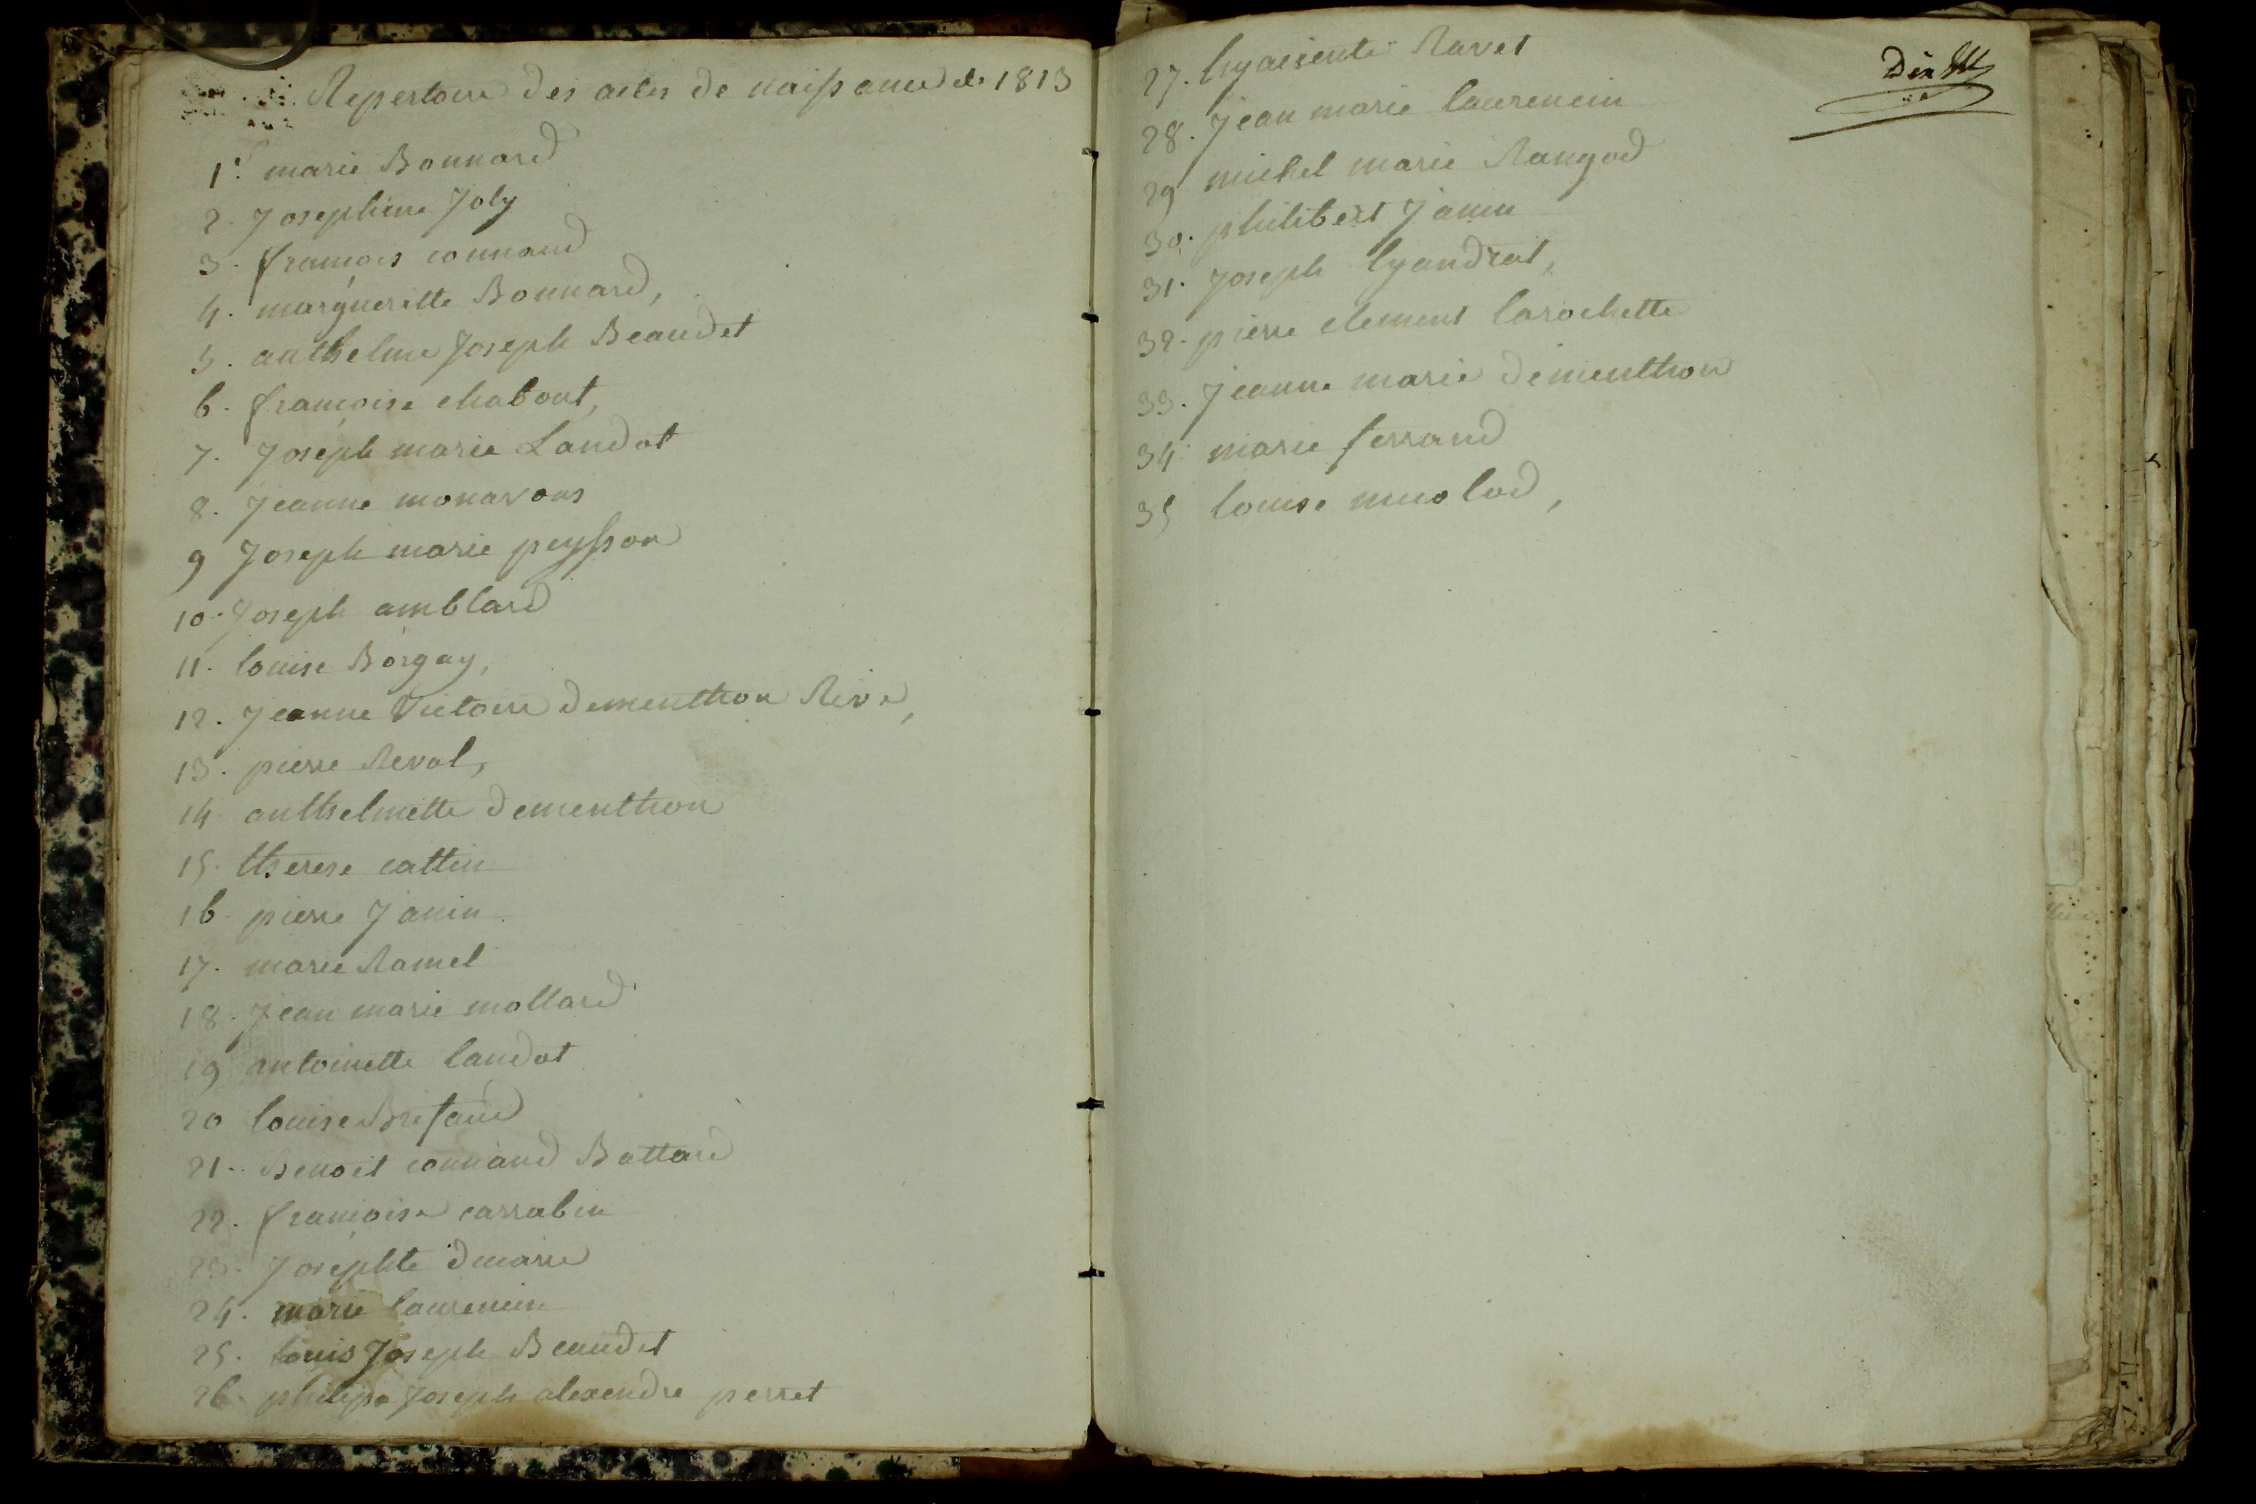 Repertoire des actes de naissance de 1813
1. marie Bonnard
2. Josephine Joly
3. françois connand
4. marguerette Bonnard,
5. anthelme Joseph Beaudet
6. françoise chabout,
7. Joseph marie Landot
8. Jeanne monavons
9 Joseph marie peysson
10. Joseph amblard
11. louise Borgay,
12. Jeanne Victoire dementhon Rive,
13. pierre Reval,
14 anthelmette dementhon
15. therese cattin
16. pierre Janin
17. marie Ramel
18. Jean marie mollard
19 antoinette landot
20 louise Brifaud
21. Benoit connand Battard
22. françoise carrabin
23. Josephte dmarre
24. marie laurencin
25. louis Joseph Beaudet
26. philipe Joseph alexendre perret
27. hyaciente Ravet
28. Jean marie laurencin
29 michel marie Rangod
30. philibert Janin
31. Joseph lyandrat,
32. pierre clement larochette
33. Jeanne marie dementhon
34 marie ferrand
35 louise
Dix